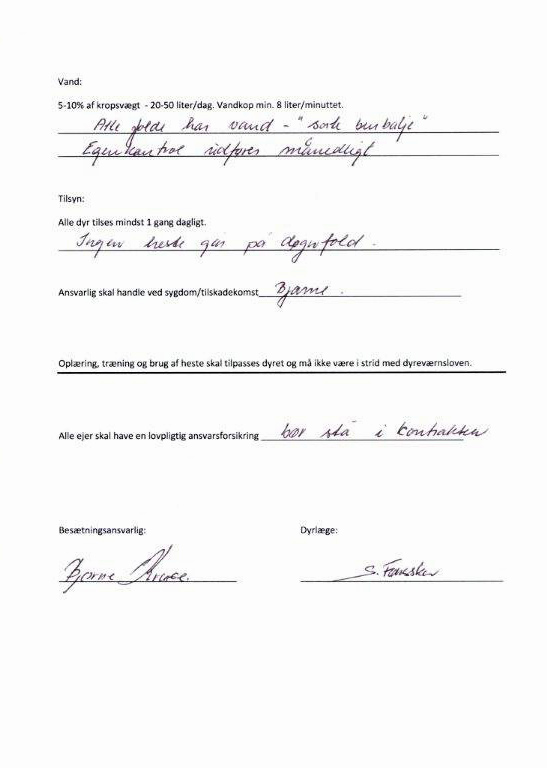 Vand:
5-10% af kropsvægt - 20-50 liter/dag. Vandkop min. 8 liter/minuttet.
Alle folde har vand - "sorte  "
Egenkontrol udføres månedligt
Tilsyn:
Alle dyr tilses mindst 1 gang dagligt.
Ingen heste går på døgnfold.
Ansvarlig skal handle ved sygdom/tilskadekomst Bjarne.
Oplæring, træning og brug af heste skal tilpasses dyret og må ikke være i strid med dyreværnsloven.
Alle ejer skal have en lovpligtig ansvarsforsikring bør stå i kontrakten
Besætningsansvarlig: Dyrlæge:
Bjarne S.